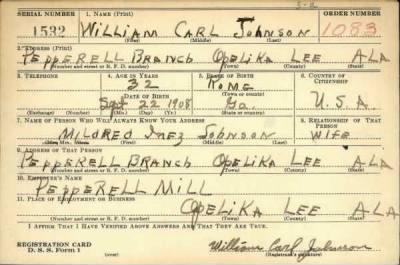 S-2
SERIAL NUMBER 1. NAME (Print) ORDER NUMBER
1532 WILLIAM CARL JOHNSON 1083
(First) (Middle) (Last)
2. ADDRESS (Print)
PEPPERELL BRANCH OPELIKA LEE ALA
(Number and street or R. F. D. number) (Town) (County) (State)
3. TELEPHONE 4. AGE IN YEARS 5. PLACE OF BIRTH 6. COUNTRY OF CITIZENSHIP
32 ROME
DATE OF BIRTH (Town or county)
Sept 22 1908 Ga. U.S.A.
(Exchange) (Number) (Mo.) (Day) (Yr.) (State or country)
7. NAME OF PERSON WHO WILL ALWAYS KNOW YOUR ADDRESS 8. RELATIONSHIP OF THAT PERSON
MILDRED INEZ JOHNSON WIFE
(Mr., Mrs., Miss) (First) (Middle) (Last)
9. ADDRESS OF THAT PERSON
PEPPERELL BRANCH OPELIKA LEE ALA
(Number and street or R. F. D. number) (Town) (County) (State)
10. EMPLOYER'S NAME
PEPPERELL MILL
11. PLACE OF EMPLOYMENT OR BUSINESS
OPELIKA LEE ALA
(Number and street or R. F. D. number) (Town) (County) (State)
I AFFIRM THAT I HAVE VERIFIED ABOVE ANSWERS AND THAT THEY ARE TRUE.
REGISTRATION CARD
D. S. S. Form 1 (over) William Carl Johnson
(Registrant's signature)